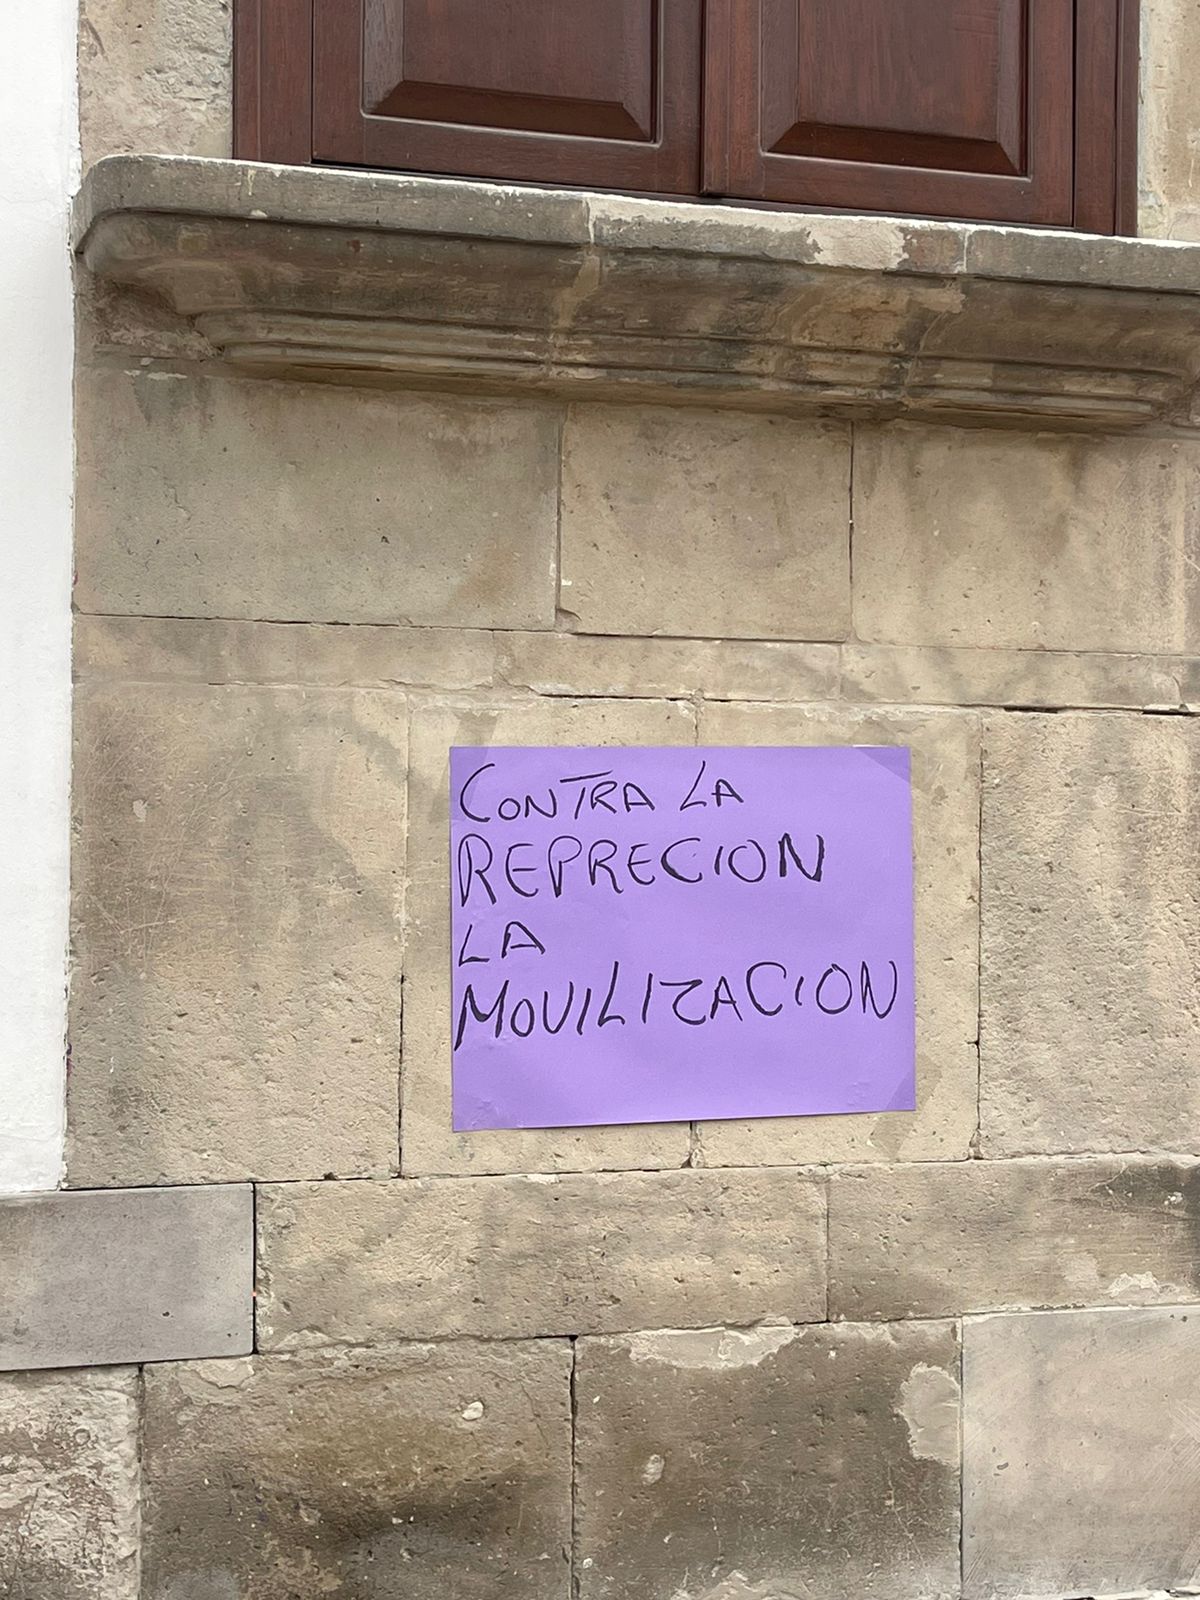 CONTRA LA
REPRECION
LA
MOVILIZACION